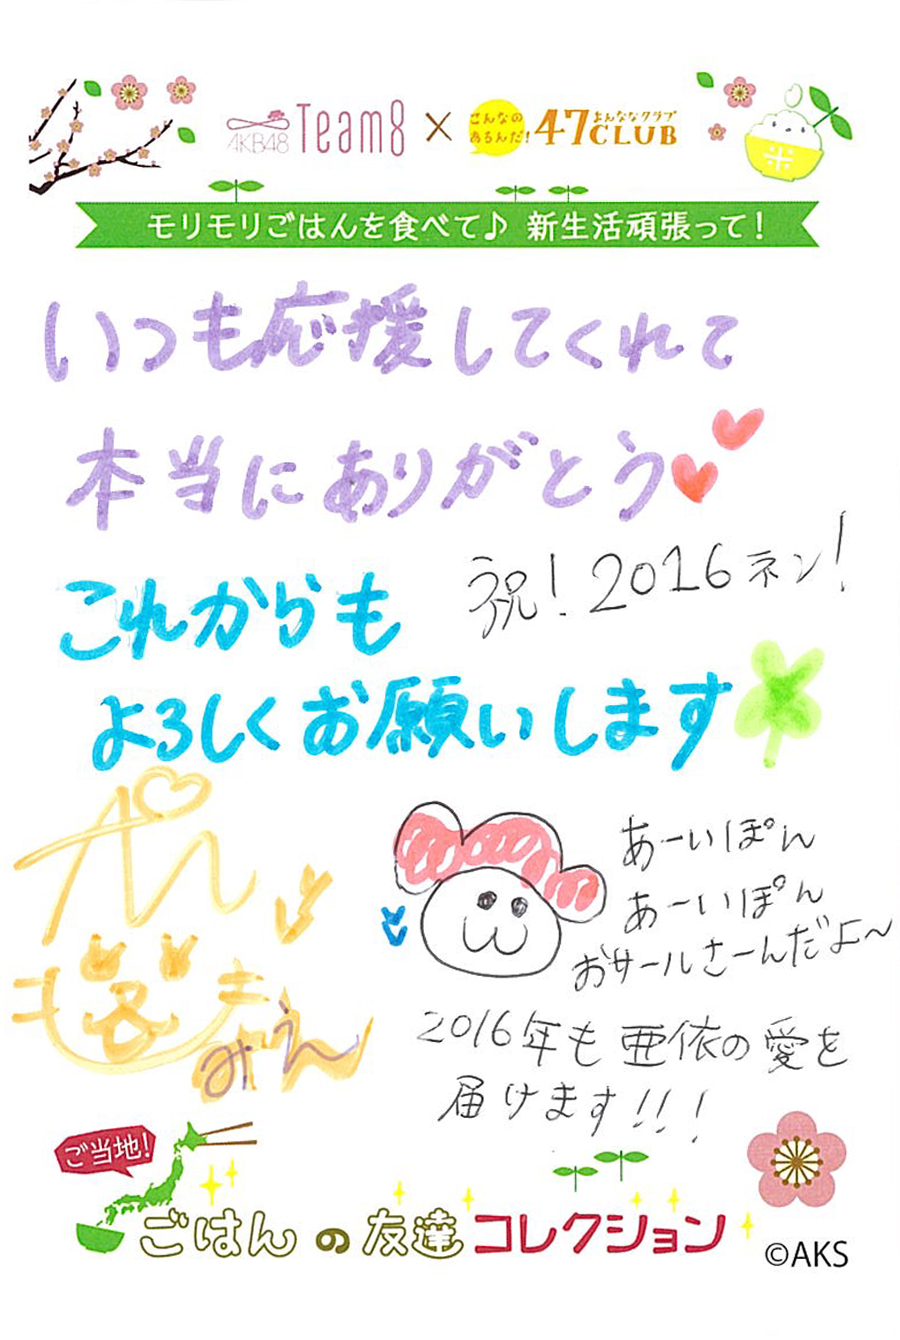 AKB48 Team8 × こんなの あるんだ! 47CLUB よんななクラブ
米
モリモリごはんを食べて♪ 新生活頑張って!
いつも応援してくれて
本当にありがとう
祝!2016ネン!
これからも
よろしくお願いします
あーいぽん
あーいぽん
おサールさーんだよ〜
みえ
2016年も亜依の愛を
届けます!!!
ご当地!
ごはんの友達コレクション
©AKS